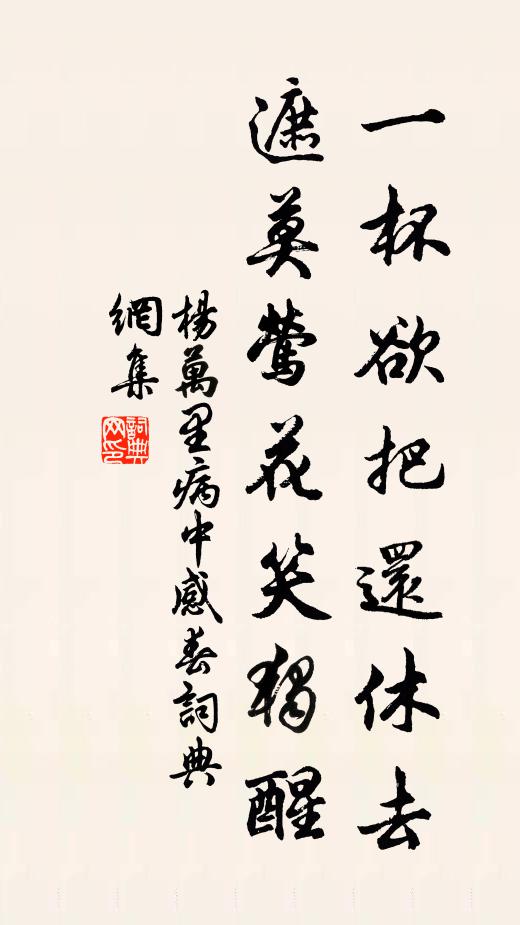 一杯欲把還休去
遮莫鶯花笑獨醒
楊萬里病中感春詞典
網集
詞典
网印